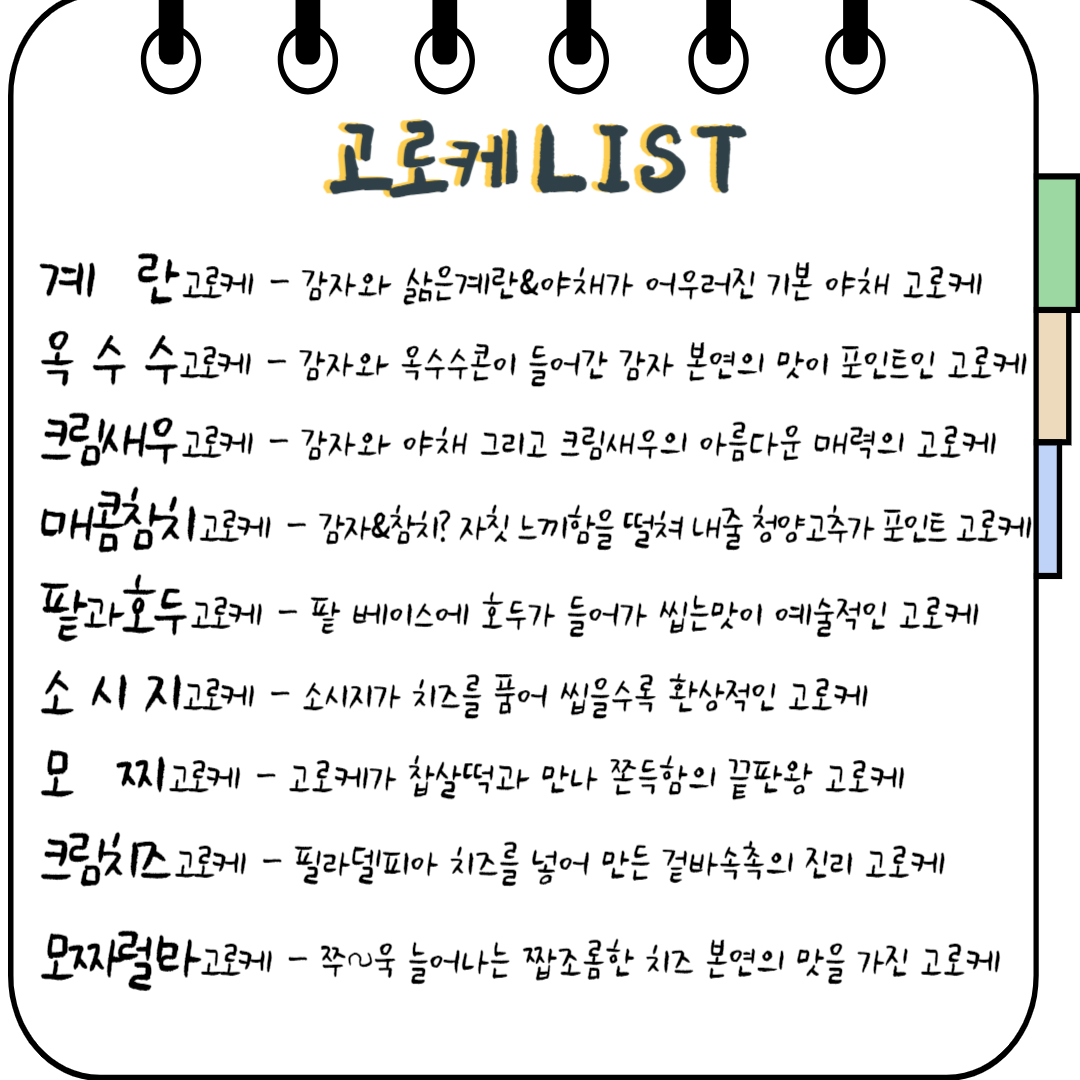 고로케 LIST
계 란고로케 - 감자와 삶은계란&야채가 어우러진 기본 야채 고로케
옥 수 수고로케 - 감자와 옥수수콘이 들어간 감자 본연의 맛이 포인트인 고로케
크림새우고로케 - 감자와 야채 그리고 크림새우의 아름다운 매력의 고로케
매콤참치고로케 - 감자&참치? 자칫 느끼함을 떨쳐 내줄 청양고추가 포인트 고로케
팥과호두고로케 - 팥 베이스에 호두가 들어가 씹는맛이 예술적인 고로케
소 시 지고로케 - 소시지가 치즈를 품어 씹을수록 환상적인 고로케
모 찌고로케 - 고로케가 찹살떡과 만나 쫀득함의 끝판왕 고로케
크림치즈고로케 - 필라델피아 치즈를 넣어 만든 겉바속촉의 진리 고로케
모짜렐라고로케 - 쭈~욱 늘어나는 짭조롬한 치즈 본연의 맛을 가진 고로케